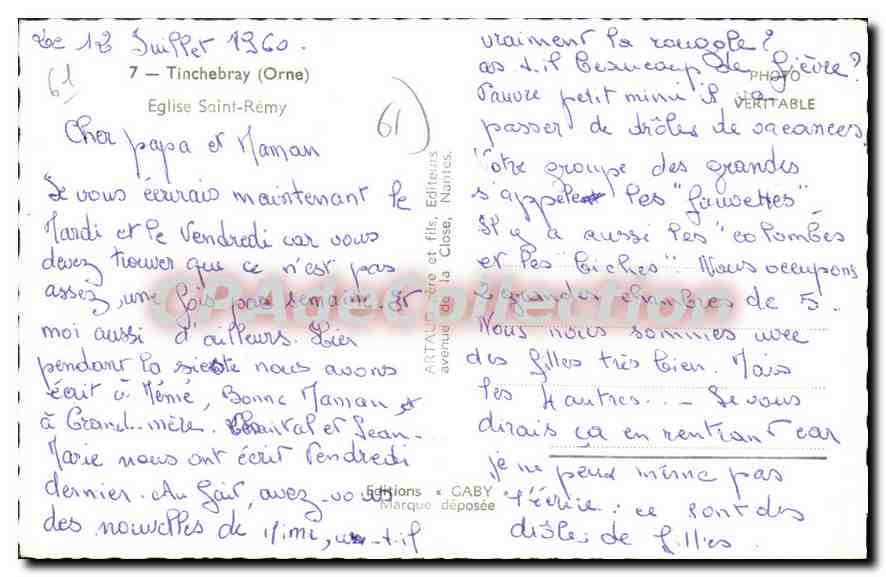 Le 12 Juillet 1960.
7 — Tinchebray (Orne)
61
Eglise Saint-Rémy
61
Cher papa et Maman
Je vous écrirais maintenant le
Mardi et le Vendredi car vous
devez trouver que ce n'est pas
assez, une fois par semaine. Et
moi aussi d'ailleurs. Hier
pendant la sieste nous avons
écrit à Mémé, Bonne Maman et
à Grand-mère. Chantal et Jean-
Marie nous ont écrit Vendredi
dernier. Au fait, avez-vous
des nouvelles de Mimi, a-t-il
ARTAUD père et fils, Editeurs
avenue de la Close, Nantes.
Editions « GABY »
Marque déposée
PHOTO
VERITABLE
vraiment la rougole?
as-t-il beaucoup de fièvre?
Pauvre petit mimi il va
passer de drôles de vacances
Notre groupe des grandes
s'appelle les "fauvettes"
Il y a aussi les "colombes
et les "biches". Nous occupons
2 grandes chambres de 5.
Nous nous sommes avec
des filles très bien. Mais
les 4 autres... - Je vous
dirais ça en rentrant car
je ne peux même pas
l'écrire : ce sont des
drôles de filles.
CPAdeCollection